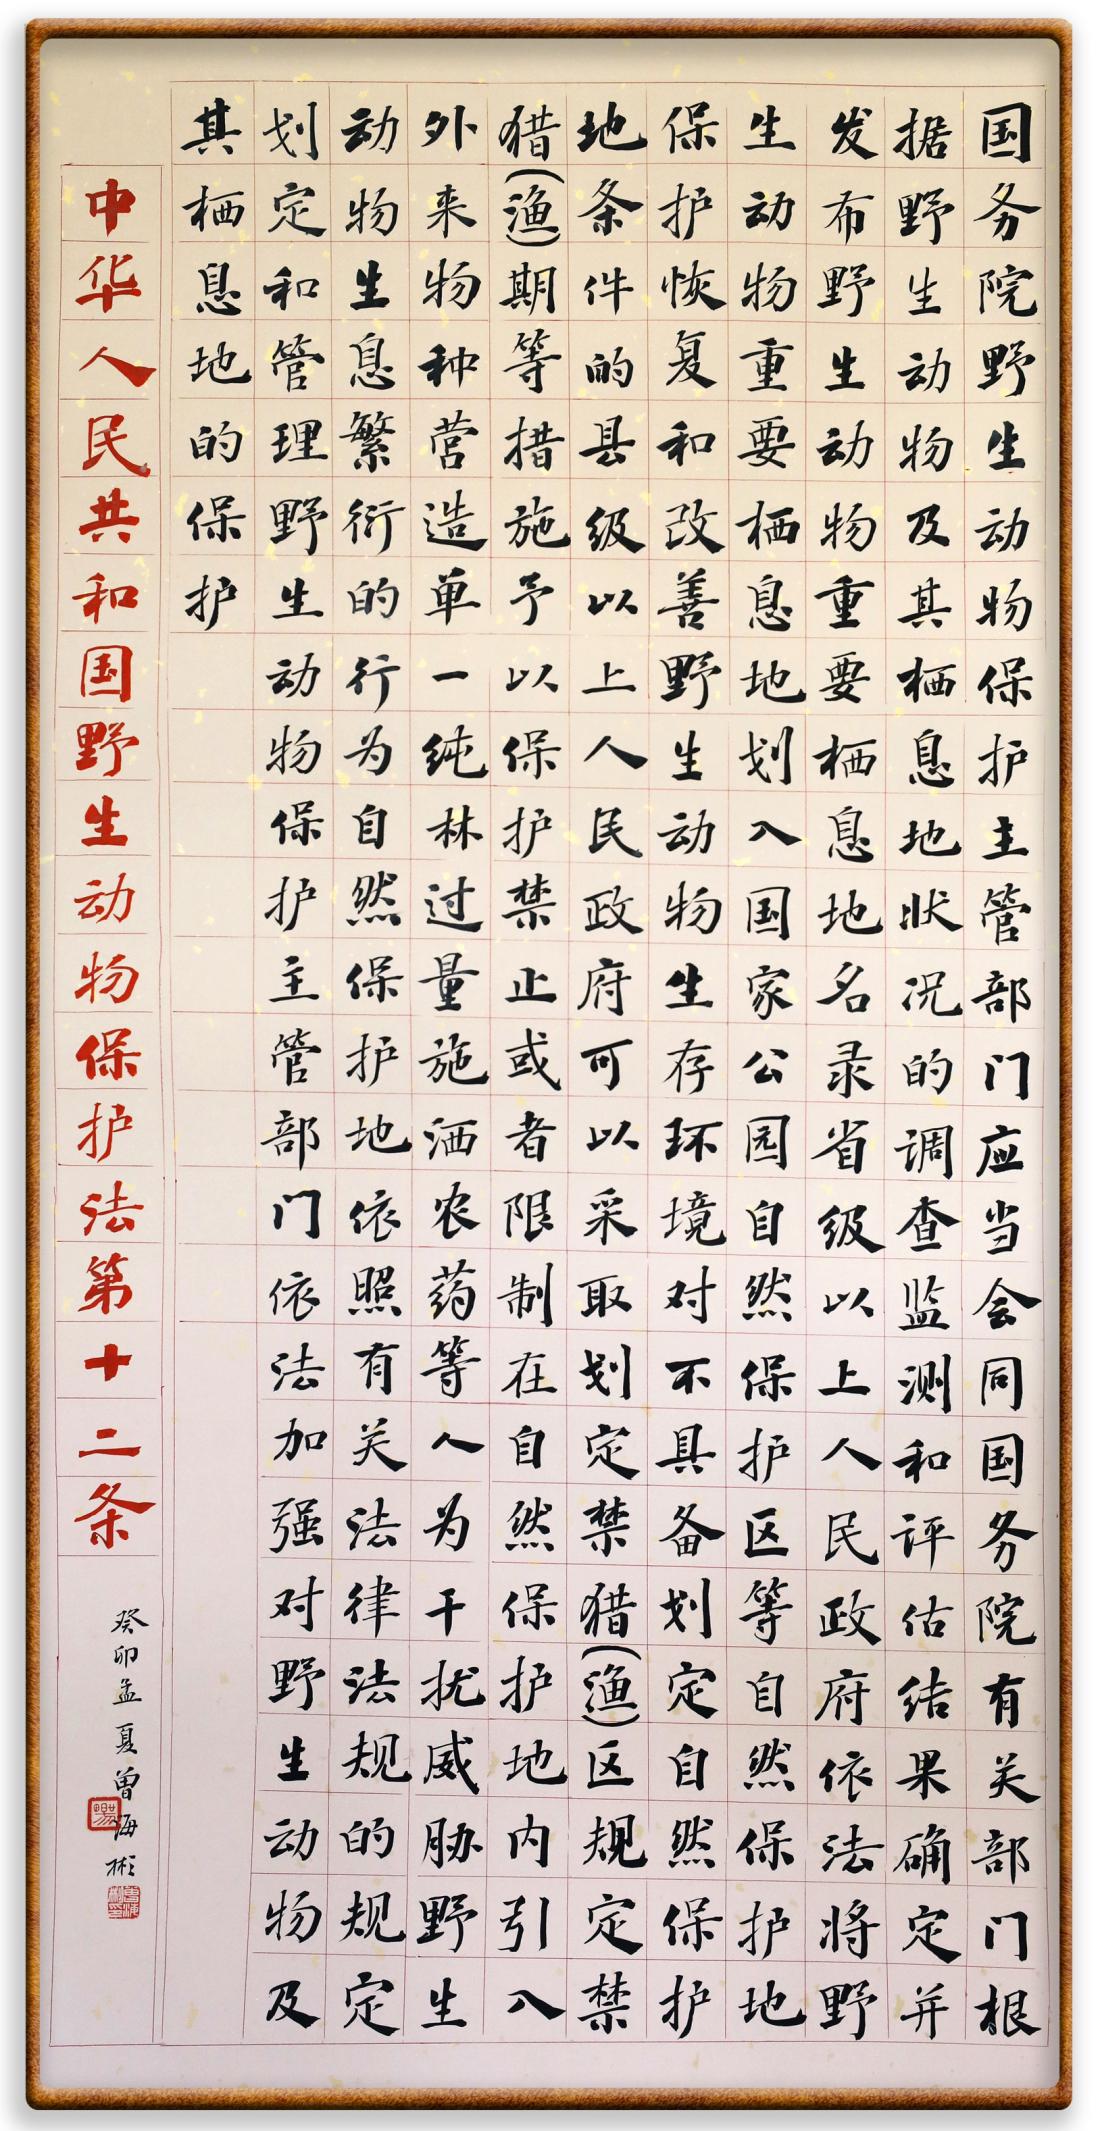 国务院野生动物保护主管部门应当会同国务院有关部门根
据野生动物及其栖息地状况的调查监测和评估结果确定并
发布野生动物重要栖息地名录省级以上人民政府依法将野
生动物重要栖息地划入国家公园自然保护区等自然保护地
保护恢复和改善野生动物生存环境对不具备划定自然保护
地条件的县级以上人民政府可以采取划定禁猎(渔)区规定禁
猎(渔)期等措施予以保护禁止或者限制在自然保护地内引入
外来物种营造单一纯林过量施洒农药等人为干扰威胁野生
动物生息繁衍的行为自然保护地依照有关法律法规的规定
划定和管理野生动物保护主管部门依法加强对野生动物及
其栖息地的保护
中华人民共和国野生动物保护法第十二条
癸卯孟夏曾海彬